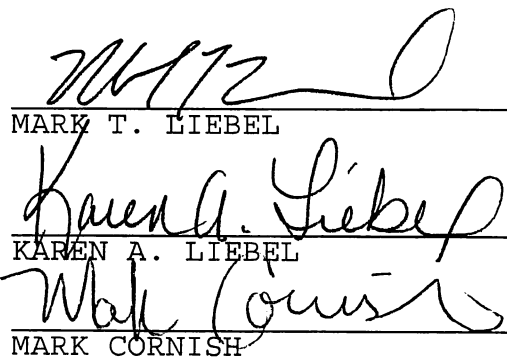 MARK T. LIEBEL
Karen A. Liebel
KAREN A. LIEBEL
Mark Cornish
MARK CORNISH